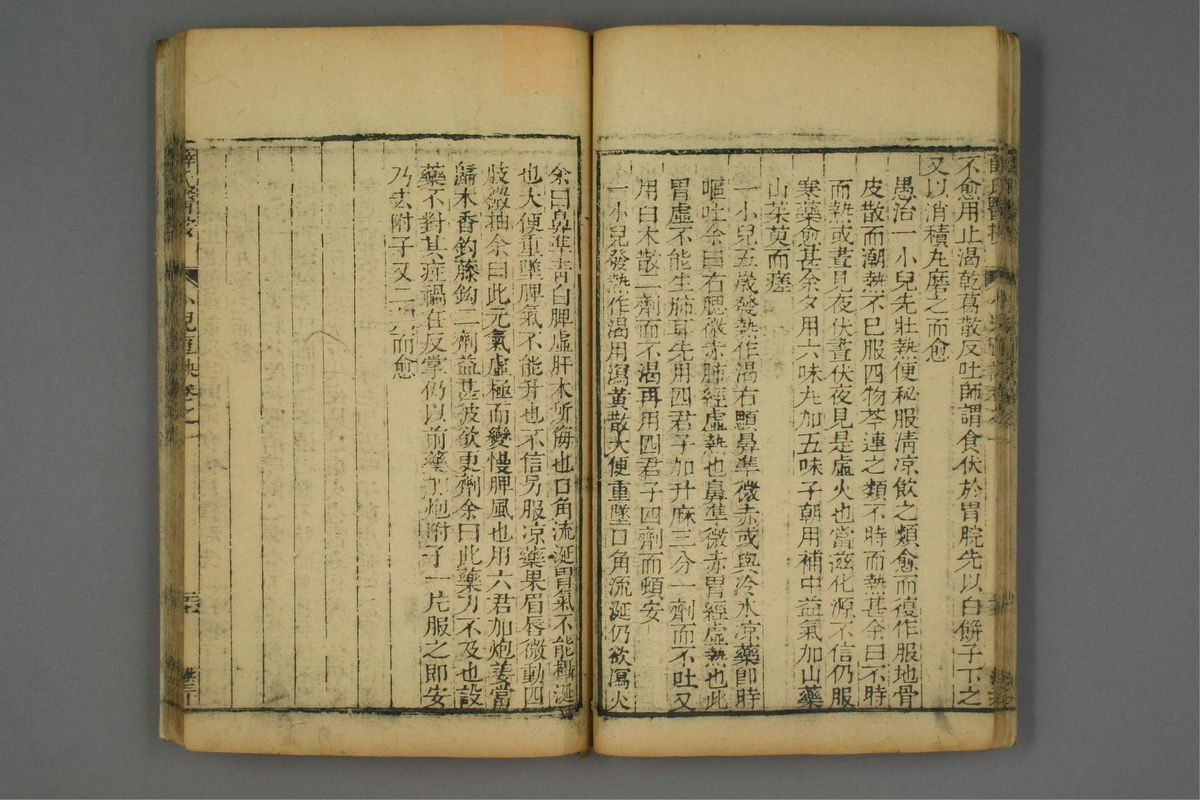 不愈用止渴乾葛散反吐師謂食伏於胃脘先以白餅子下之
又以消積丸磨之而愈
愚治一小兒先壯熱便秘服清凉飲之類愈而復作服地骨
皮散而潮熱不已服四物芩連之類不時而熱甚余曰不時
而熱或晝見夜伏晝伏夜見是虛火也當滋化源不信仍服
寒藥愈甚余夕用六味丸加五味子朝用補中益氣加山藥
山茱萸而瘥
一小兒五歲發熱作渴右顋鼻準微赤或與冷水凉藥卽時
嘔吐余曰右腮微赤肺經虛熱也鼻準微赤胃經虛熱也此
胃虛不能生肺耳先用四君子加升麻三分一劑而不吐又
用白术散二劑而不渴再用四君子四劑而頓安
一小兒發熱作渴用瀉黃散大便重墜口角流涎仍欲瀉火
余曰鼻準青白脾虛肝木所侮也口角流涎胃氣不能攝涎
也大便重墜脾氣不能升也不信另服凉藥果眉唇微動四
肢微抽余曰此元氣虛極而變慢脾風也用六君加炮姜當
歸木香鈎藤鈎二劑益甚彼欲更劑余曰此藥力不及也設
藥不對其症禍在反掌仍以前藥加炮附子一片服之卽安
乃去附子又二而愈
小兒直訣卷之一